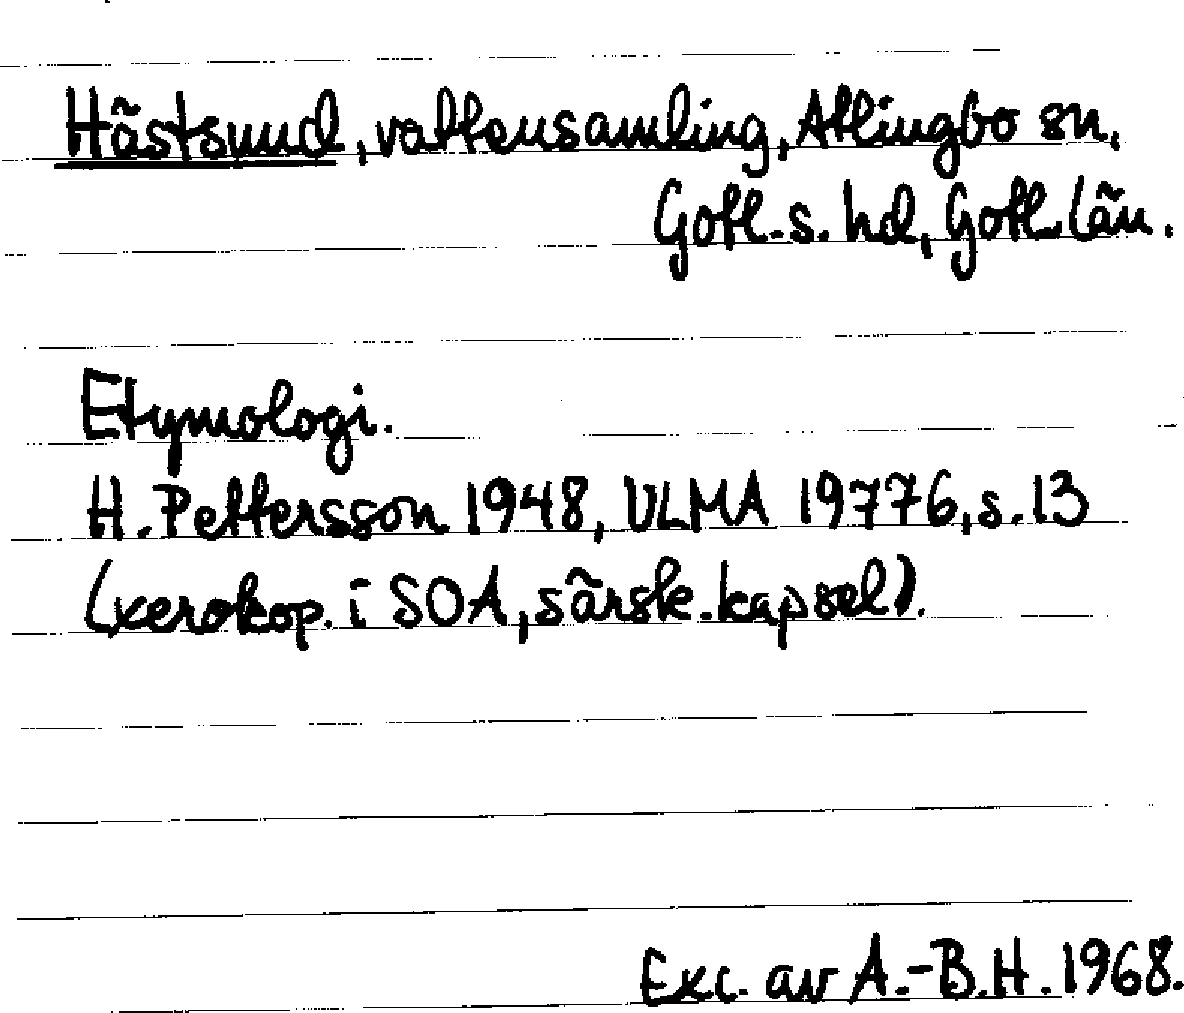 Hästsund, vattensamling, Atlingbo sn,
Gotl. s. hd, Gotl. län.
Etymologi.
H. Pettersson 1948, ULMA 19776, s. 13
(xerokop. i SOA, särsk. kapsel).
Exc. av A.-B.H. 1968.